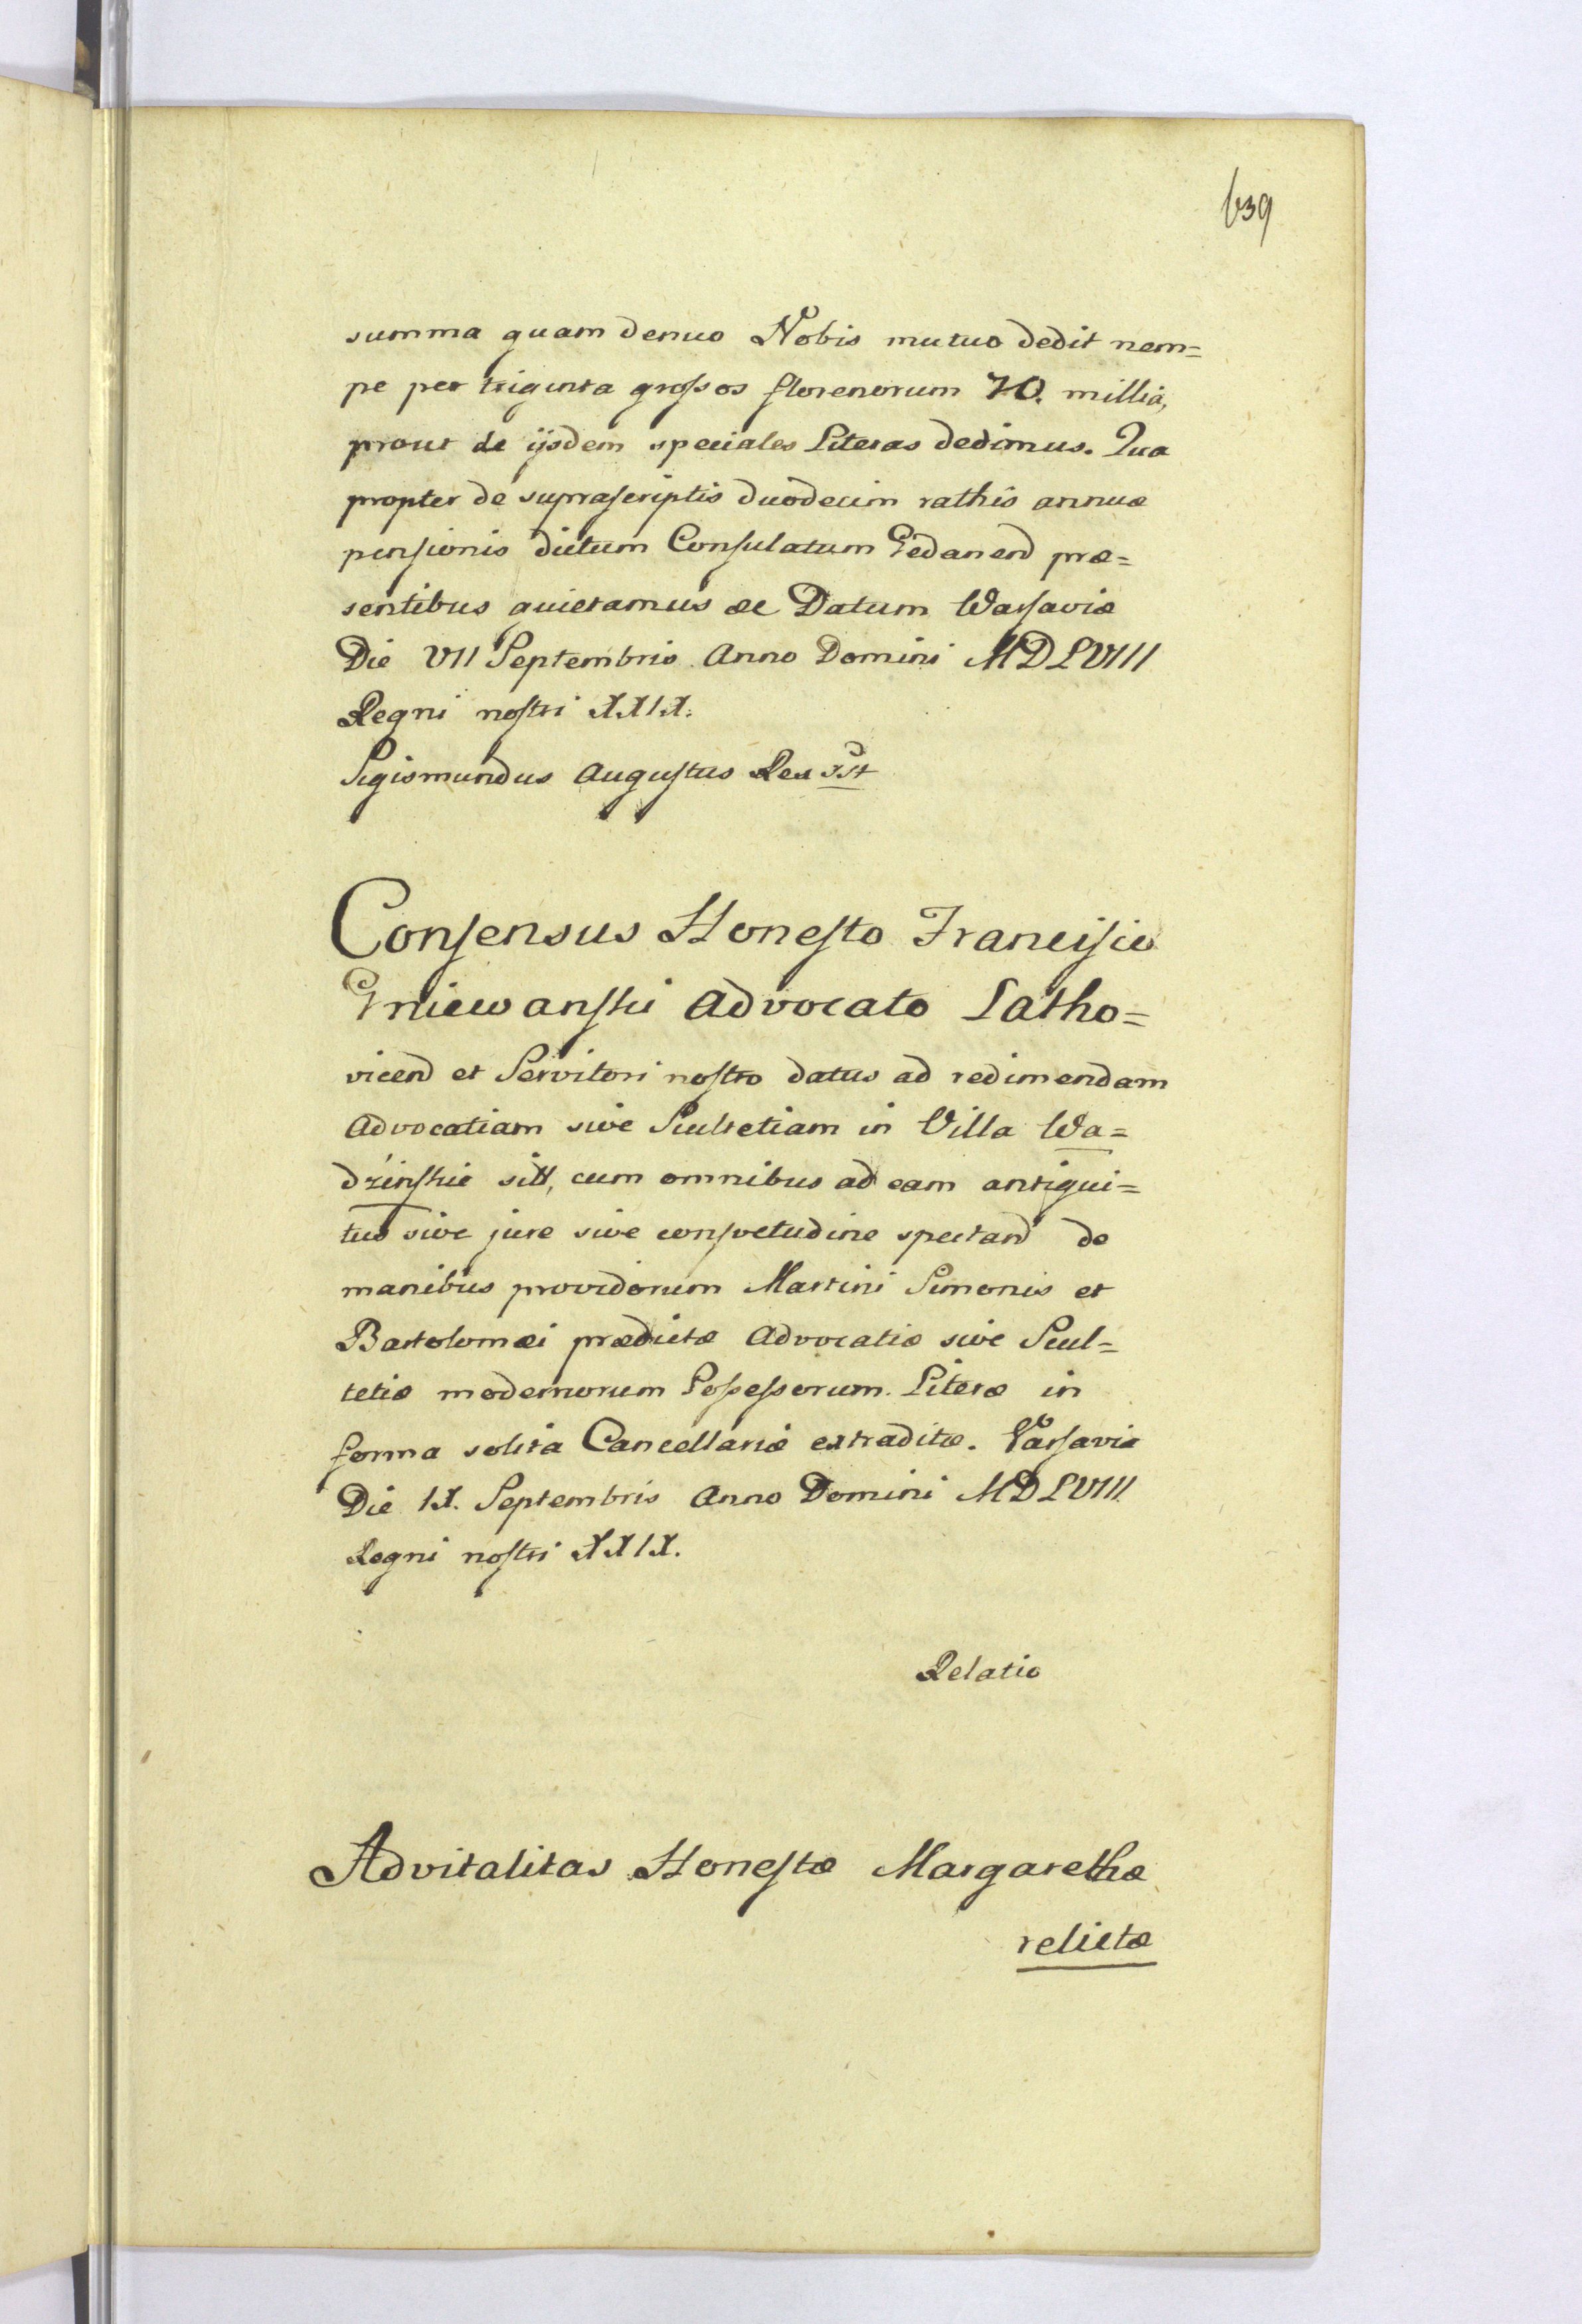 639
summa quam denuo Nobis mutuo dedit nem=
pe per triginta grossos florenorum 70. millia,
prout de ijsdem speciales Literas dedimus. Qua
propter de suprascriptis duodecim rathis annuæ
pensionis dictum Consulatum Gedanen præ=
sentibus quietamus &c Datum Warsaviæ
Die VII Septembris Anno Domini MDLVIII
Regni nostri XXIX.
Sigismundus Augustus Rex sst
Consensus Honesto Francisco
Gniewanski Advocato Latho=
vicen et Servitori nostro datus ad redimendam
Advocatiam sive Scultetiam in Villa Wa=
dzinskie sitt, cum omnibus ad eam antiqui=
tus sive jure sive consvetudine spectan de
manibus providorum Martini Simonis et
Bartolomæi prædictæ Advocatiæ sive Scul=
tetiæ modernorum Possessorum. Literæ in
forma solita Cancellariæ extraditæ. Varsaviæ
Die IX. Septembris Anno Domini MDLVIII
Regni nostri XXIX.
Relatio
Advitalitas Honestæ Margarethæ
relictæ